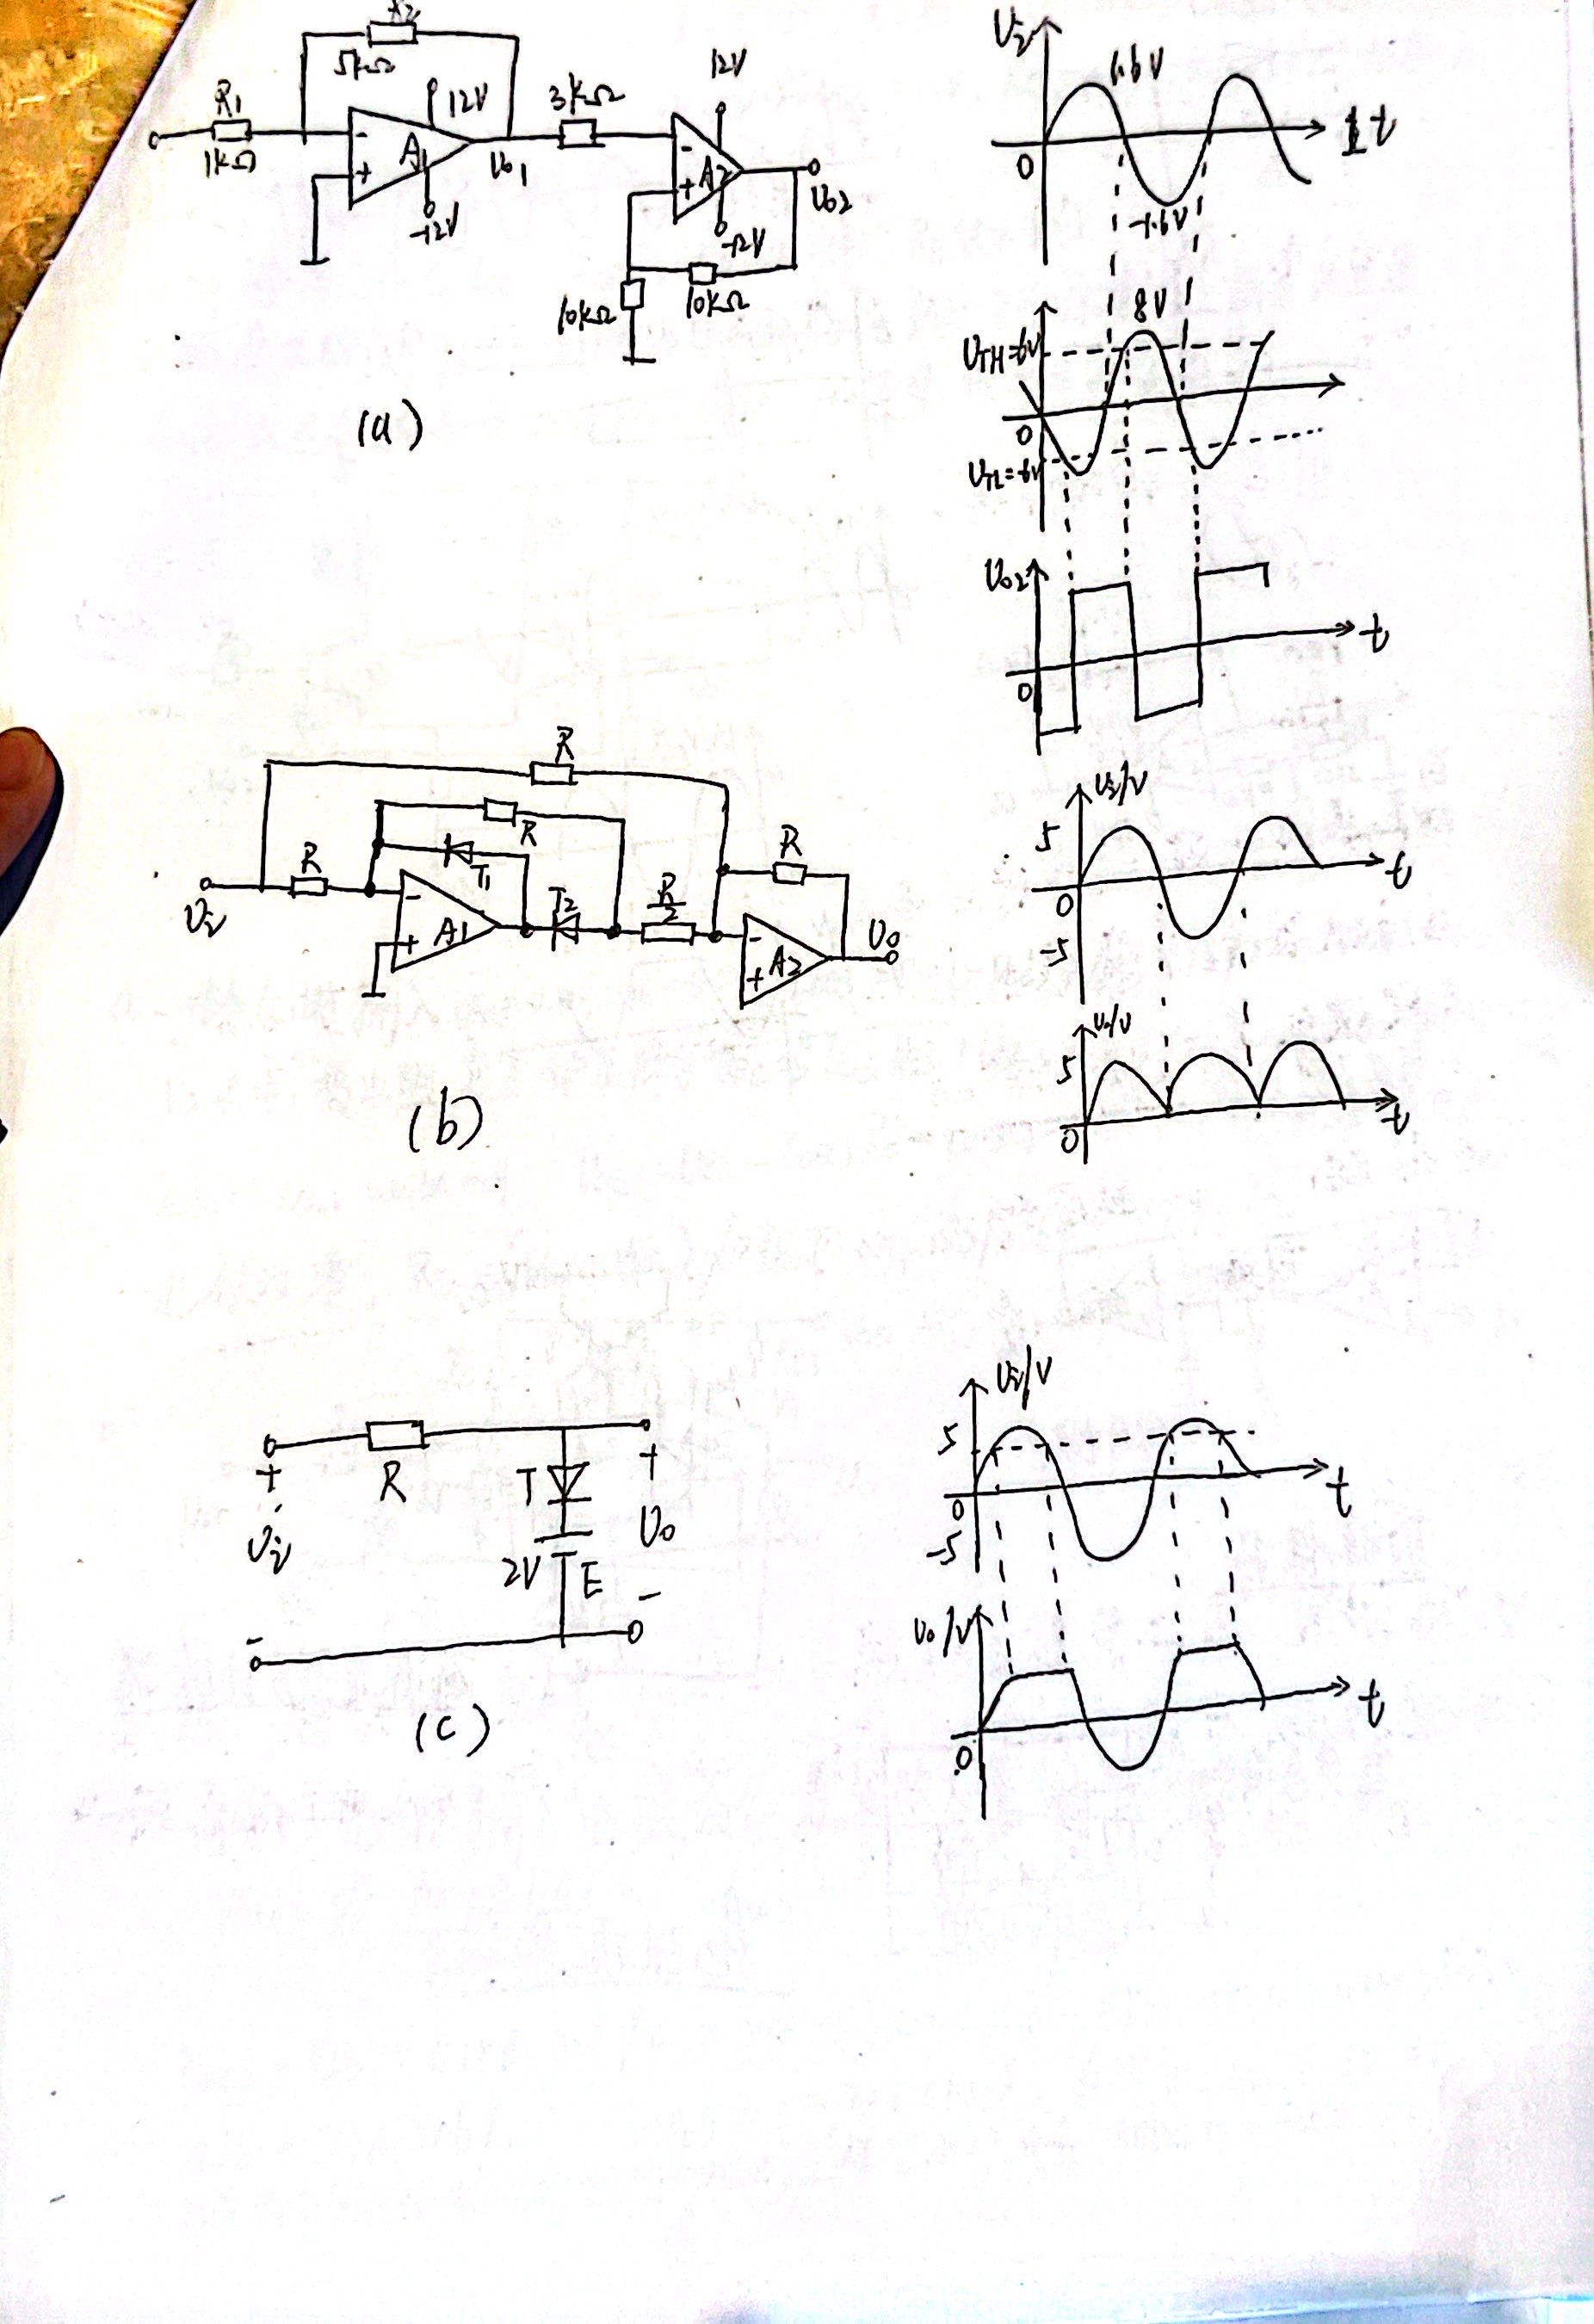 R2
5kΩ
R1
1kΩ
-
+
A1
12V
-12V
Uo1
3kΩ
12V
-
+
A2
-12V
Uo2
10kΩ
10kΩ
(a)
Ui
1.6V
-1.6V
0
t
UTH=6V
8V
0
UTL=-6V
Uo2
0
t
R
R
T1
R
Ui
-
+
A1
T2
R/2
R
-
+
A2
Uo
(b)
Ui/V
5
0
-5
t
Uo/V
5
0
t
+
Ui
-
R
T
2V
E
+
Uo
-
(c)
Ui/V
5
0
-5
t
Uo/V
0
t